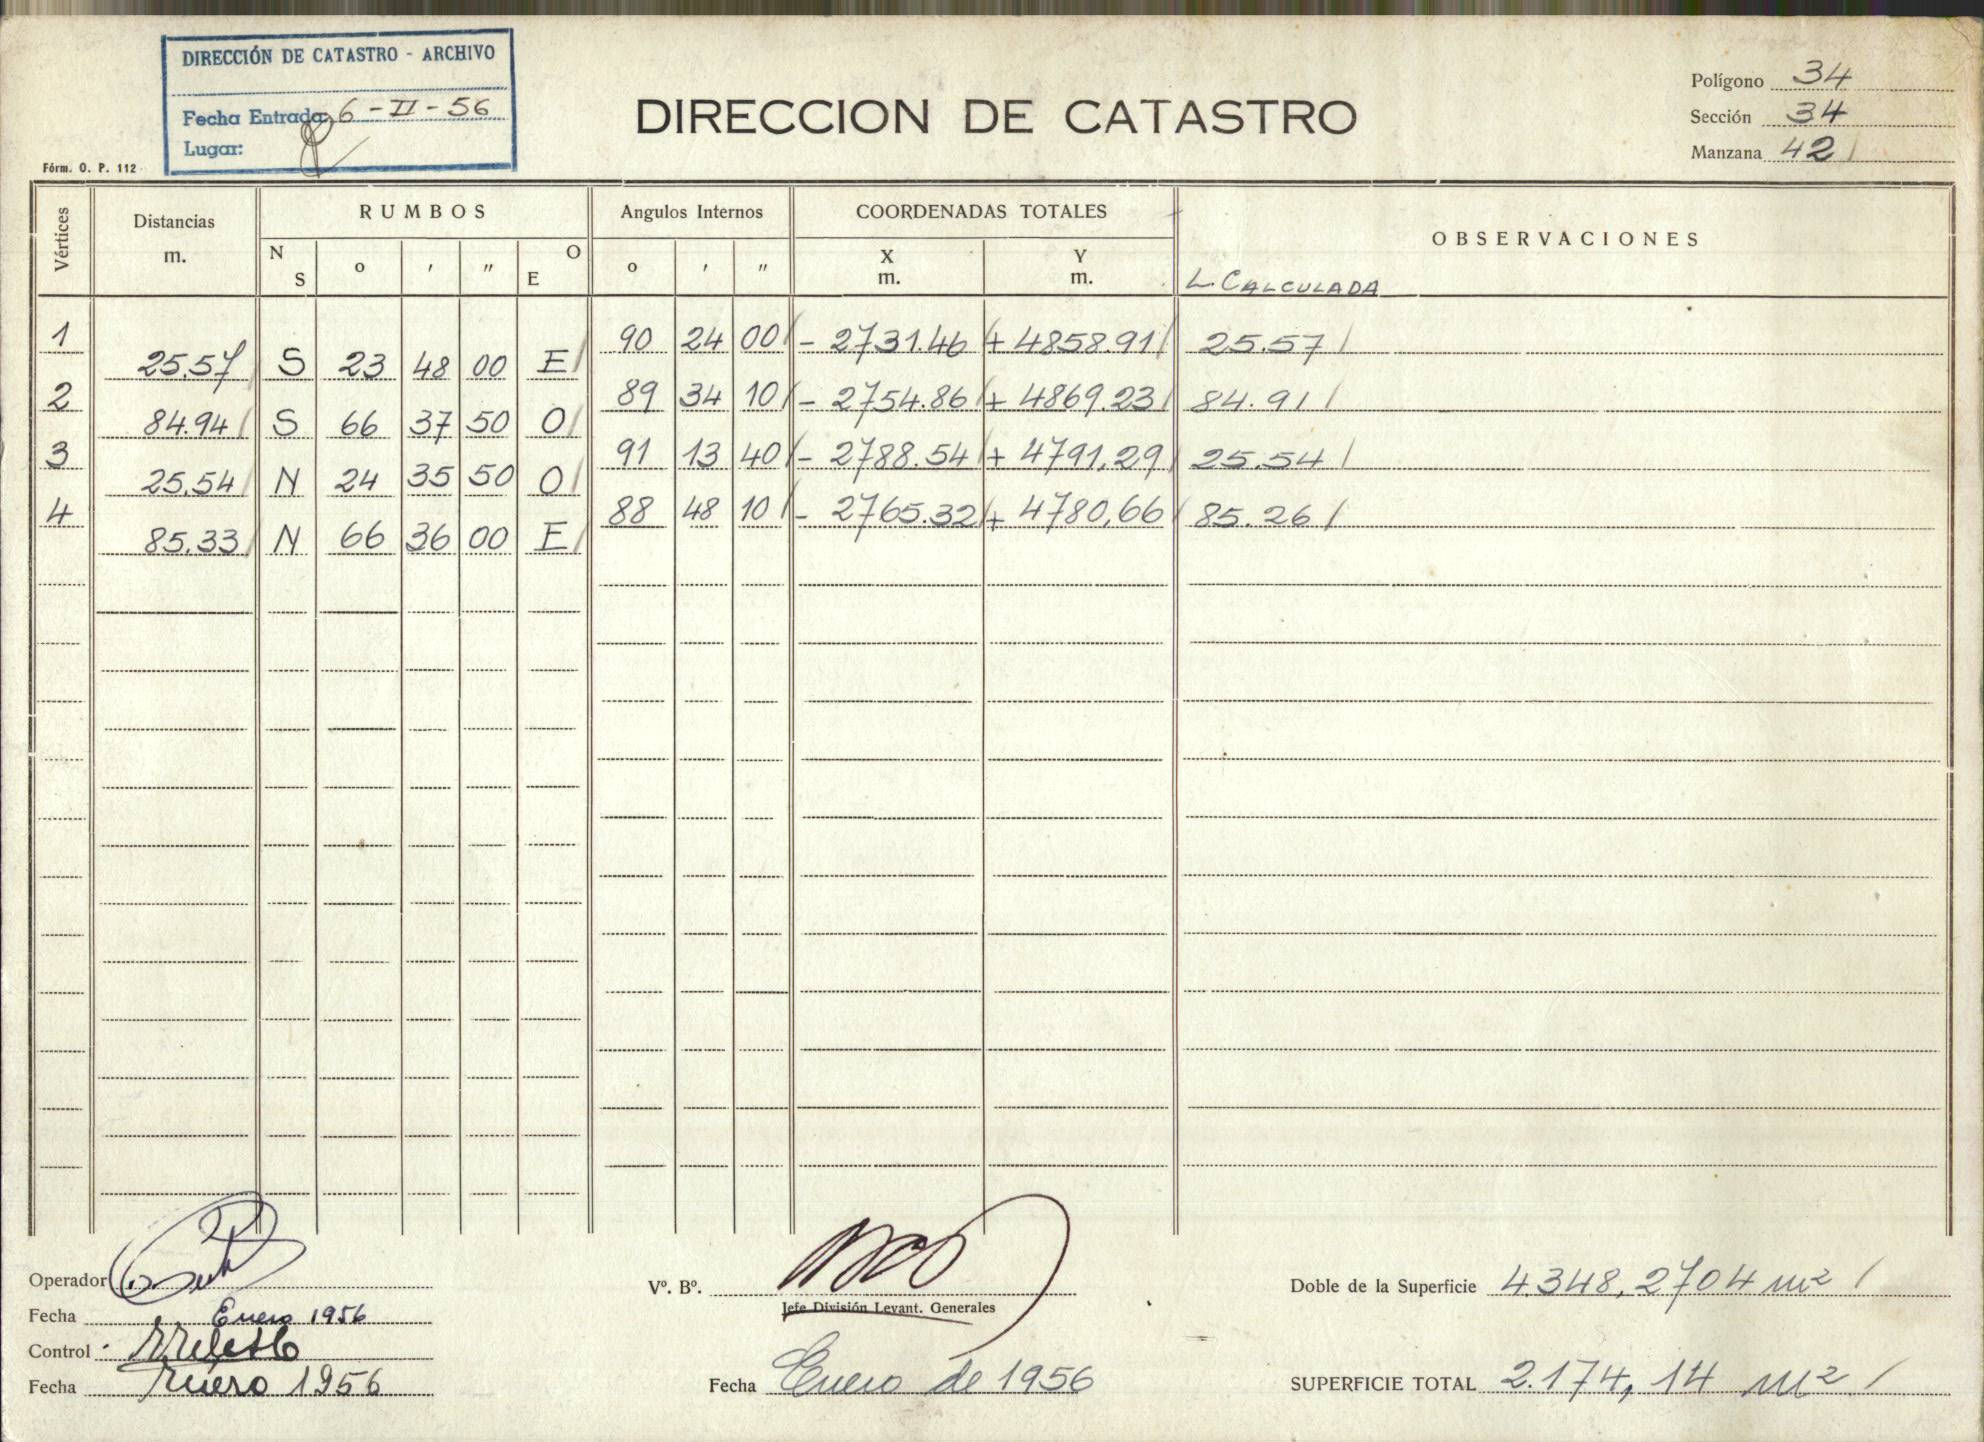 DIRECCIÓN DE CATASTRO - ARCHIVO
Fecha Entrada: 6-II-56
Lugar:
Fórm. O. P. 112
DIRECCION DE CATASTRO
Polígono 34
Sección 34
Manzana 42
Vértices Distancias m. RUMBOS Angulos Internos COORDENADAS TOTALES OBSERVACIONES
N S o ' " O E o ' " X m. Y m. L. CALCULADA
1 90 24 00 - 2731.46 + 4858.91 25.57
25.57 S 23 48 00 E
2 89 34 10 - 2754.86 + 4869.23 84.91
84.94 S 66 37 50 O
3 91 13 40 - 2788.54 + 4791,29 25.54
25,54 N 24 35 50 O
4 88 48 10 - 2765.32 + 4780,66 85.26
85.33 N 66 36 00 E
Operador
Fecha Enero 1956
Control
Fecha Enero 1956
Vº. Bº.
Jefe División Levant. Generales
Fecha Enero de 1956
Doble de la Superficie 4348,2704 m²
SUPERFICIE TOTAL 2.174,14 m²